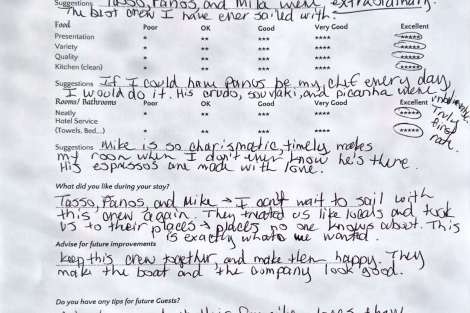 Suggestions Tasso, Panos, and Mike were extraordinary.
The best crew I have ever sailed with.
Food Poor OK Good Very Good Excellent
Presentation * ** *** **** *****
Variety * ** *** **** *****
Quality * ** *** **** *****
Kitchen (clean) * ** *** **** *****
Suggestions If I could have Panos be my chef every day,
I would do it. His crudo, souvlaki, and picanha were
Rooms/ Bathrooms Poor OK Good Very Good Excellent
Truly
first
rate.
Neatly * ** *** **** *****
Hotel Service
(Towels, Bed...) * ** *** **** *****
Suggestions Mike is so charismatic, timely, makes
my room when I don't even know he's there.
His espressos are made with love.
What did you like during your stay?
Tasso, Panos, and Mike → I can't wait to sail with
this crew again. They treated us like locals and took
us to their places → places no one knows about. This
is exactly what we wanted.
Advise for future improvements
keep this crew together and make them happy. They
make the boat and the company look good.
Do you have any tips for future Guests?